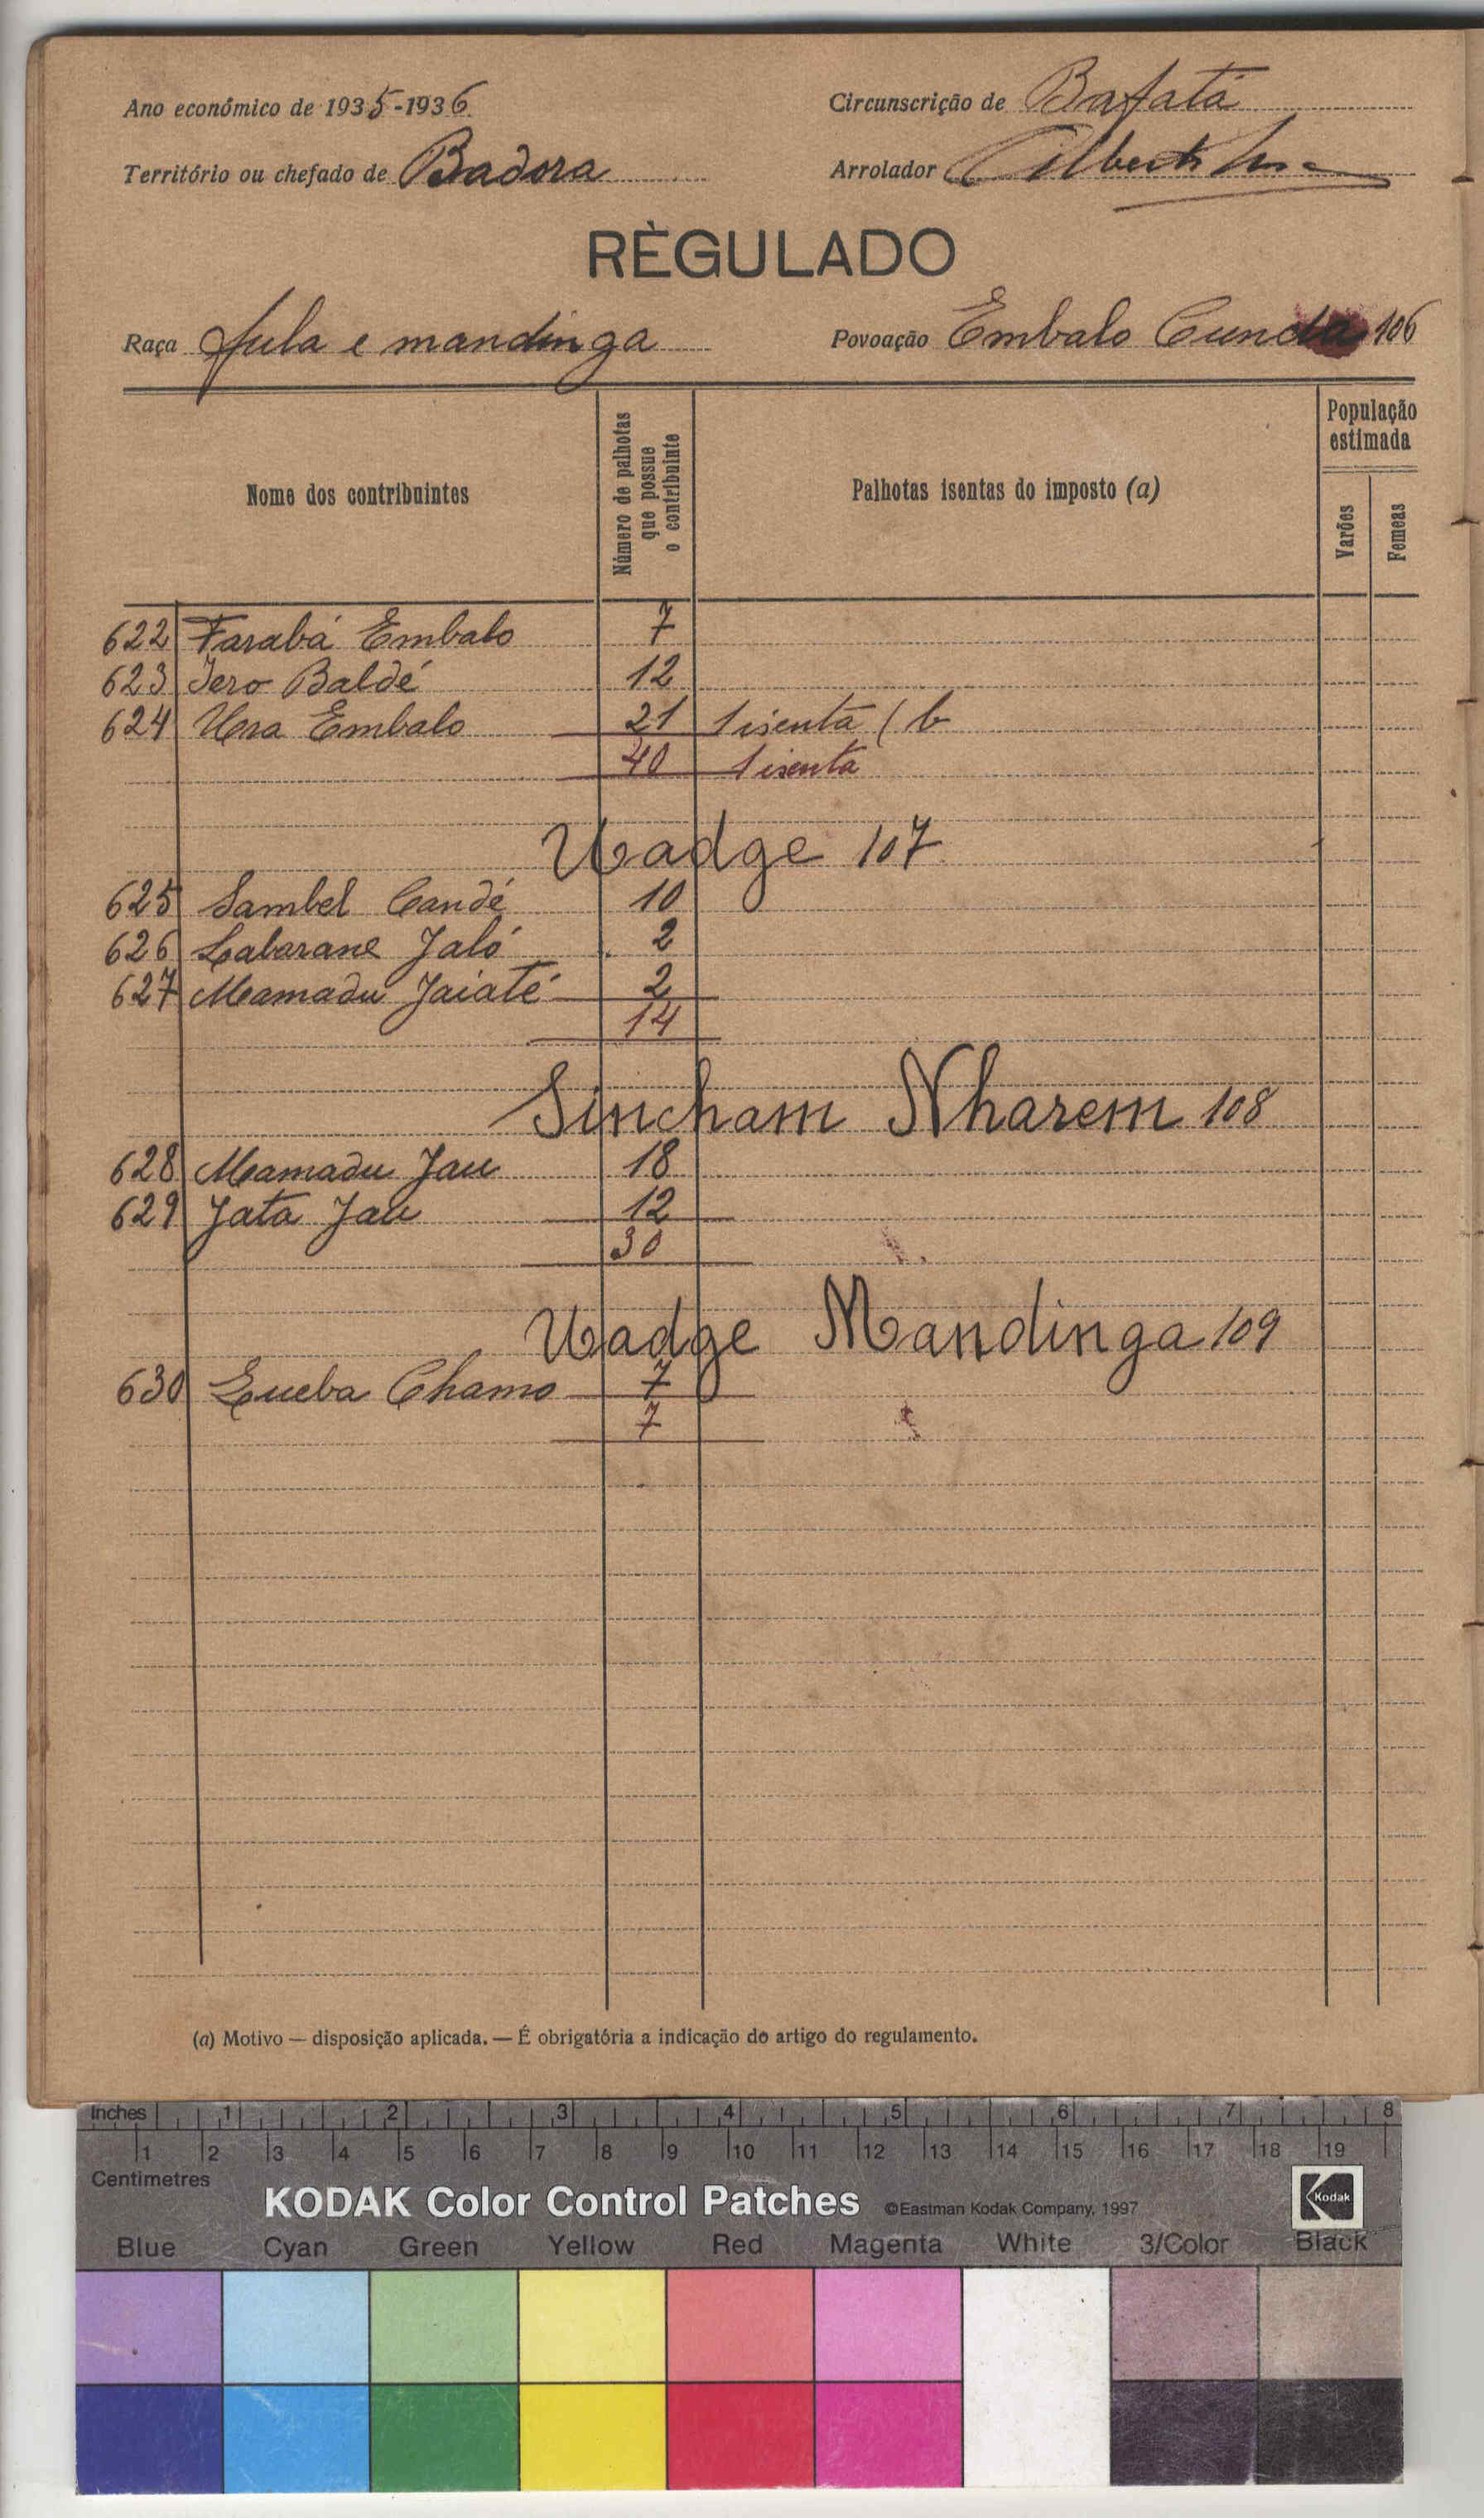 Ano económico de 1935-1936
Circunscrição de Bafatá
Território ou chefado de Badora
Arrolador
RÈGULADO
Raça fula e mandinga
Povoação Embalo Cunda 106
Nome dos contribuintes
Número de palhotas que possue o contribuinte
Palhotas isentas do imposto (a)
População estimada
Varões
Femeas
622 Farabá Embalo 7
623 Iero Baldé 12
624 Ura Embalo 21 1 isenta ( b
40 1 isenta
Uadge 107
625 Sambel Candé 10
626 Labarane Jaló 2
627 Mamadu Jaiaté 2
14
Sincham Nharem 108
628 Mamadu Jau 18
629 Jata Jau 12
30
Uadge Mandinga 109
630 Queba Chamo 7
7
(a) Motivo — disposição aplicada. — É obrigatória a indicação do artigo do regulamento.
Inches 1 2 3 4 5 6 7 8
1 2 3 4 5 6 7 8 9 10 11 12 13 14 15 16 17 18 19
Centimetres
KODAK Color Control Patches ©Eastman Kodak Company, 1997 Kodak
Blue Cyan Green Yellow Red Magenta White 3/Color Black